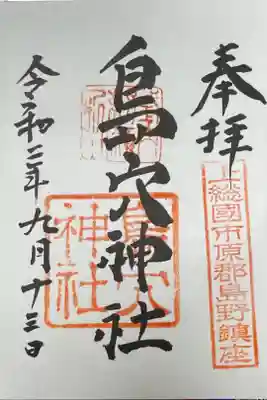 奉拝
上総國市原郡島野鎮座
島穴神社
島穴神社
令和三年九月十三日